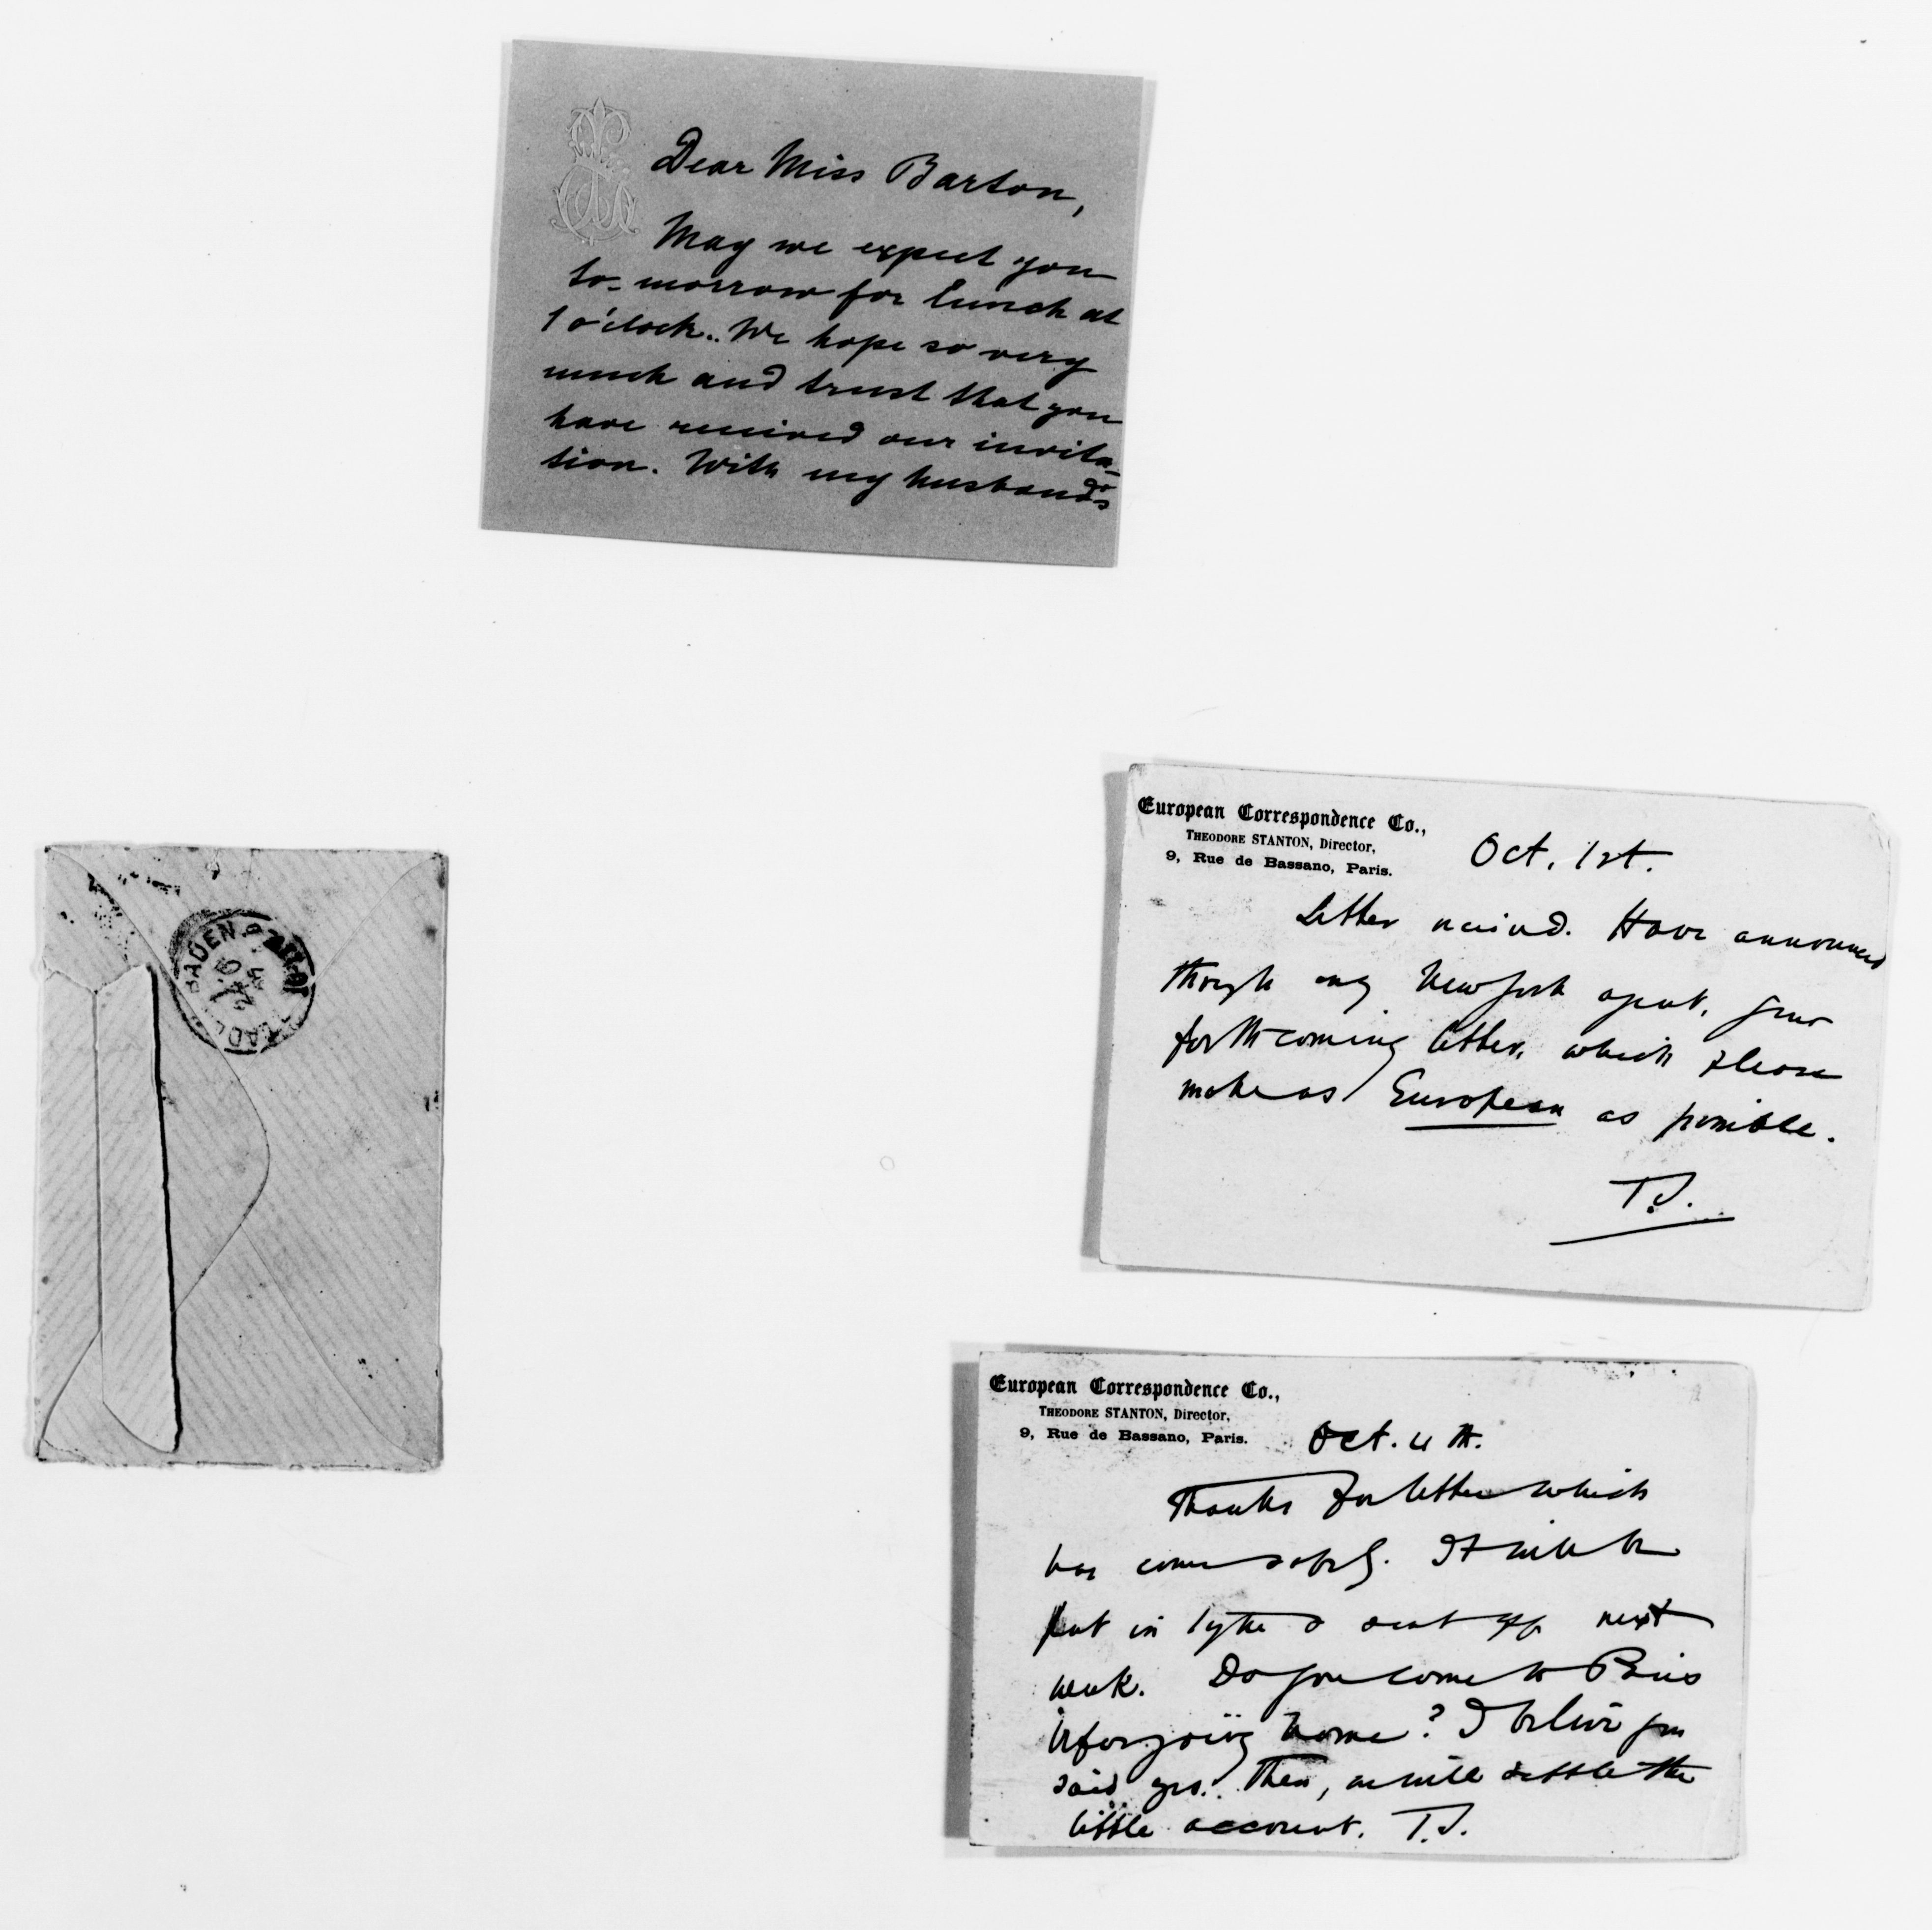 Dear Miss Barton,
May we expect you
to-morrow for lunch at
1 o'clock.. We hope so very
much and trust that you
have received our invita-
tion. With my husband's
BADEN
European Correspondence Co.,
THEODORE STANTON, Director,
9, Rue de Bassano, Paris.
Oct. 1st.
Letter received. Have announced
through my New York agent, your
forthcoming letter, which please
make as European as possible.
T.S.
European Correspondence Co.,
THEODORE STANTON, Director,
9, Rue de Bassano, Paris.
Oct. 4th.
Thanks for letter which
has come safely. It will be
put in type & sent off next
week. Do you come to Paris
before going home? I believe you
said yes. Then, we will settle the
little account. T.S.